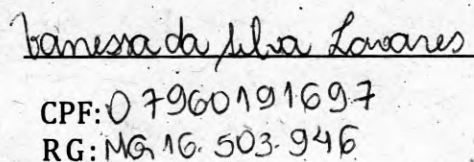 Vanessa da Silva Lavares
CPF: 07960191697
RG: MG 16.503.946